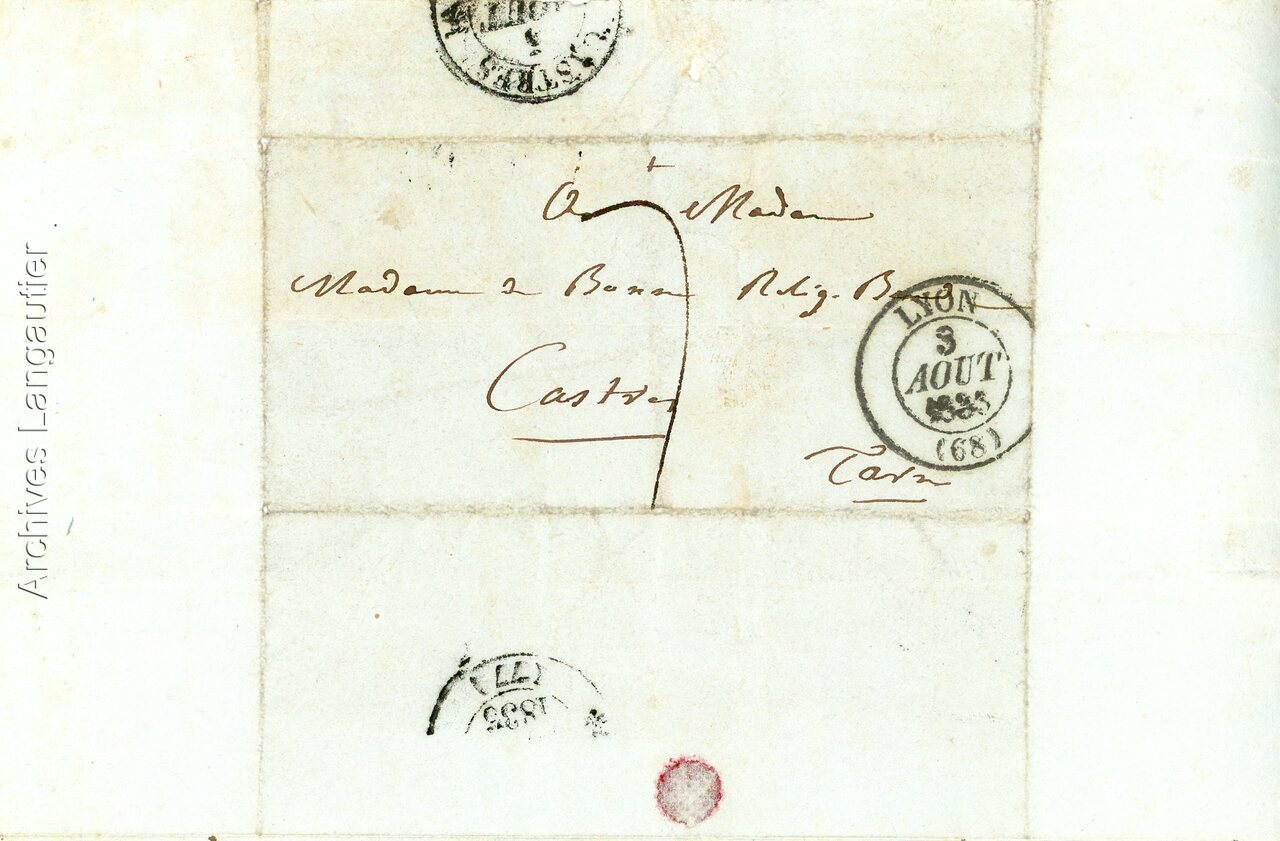 CASTRES
5
AOUT
+
A Madame
Madame de Bonne Relig. Béned
Castres
Tarn
7
LYON
3
AOUT
1835
(68)
(77)
1835
Archives Langautier